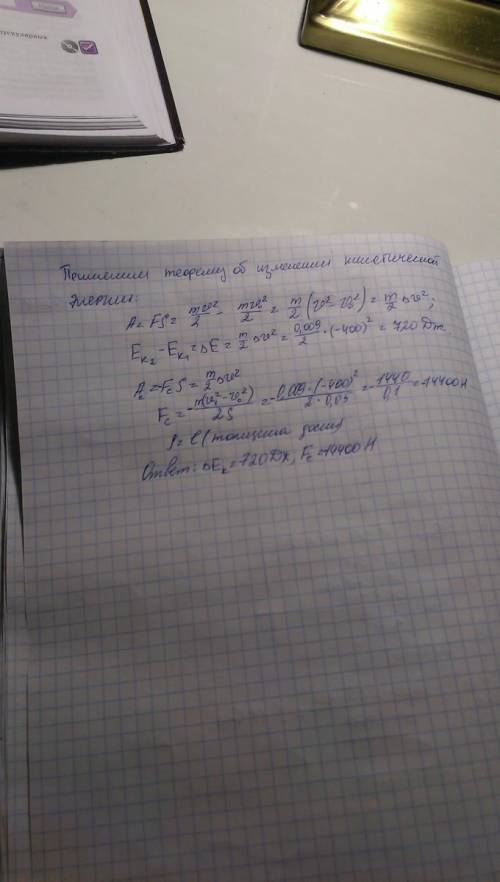 пускулярных
Применим теорему об изменении кинетической
энергии:
A = FS = mv²/2 - mv₀²/2 = m/2 (v² - v₀²) = m/2 Δv²;
E_k₂ - E_k₁ = ΔE = m/2 Δv² = 0,009/2 · (-400)² = 720 Дж.
A_c = F_c S = m/2 Δv²
F_c = -m(v₁² - v₀²)/2S = -0,009 · (-400)²/2 · 0,05 = -1440/0,1 = -14400 Н
S = l (толщина доски)
Ответ: ΔE_k = 720 Дж; F_c = -14400 Н